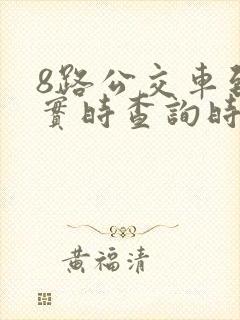 8路公交車
實時查詢時
黃福清